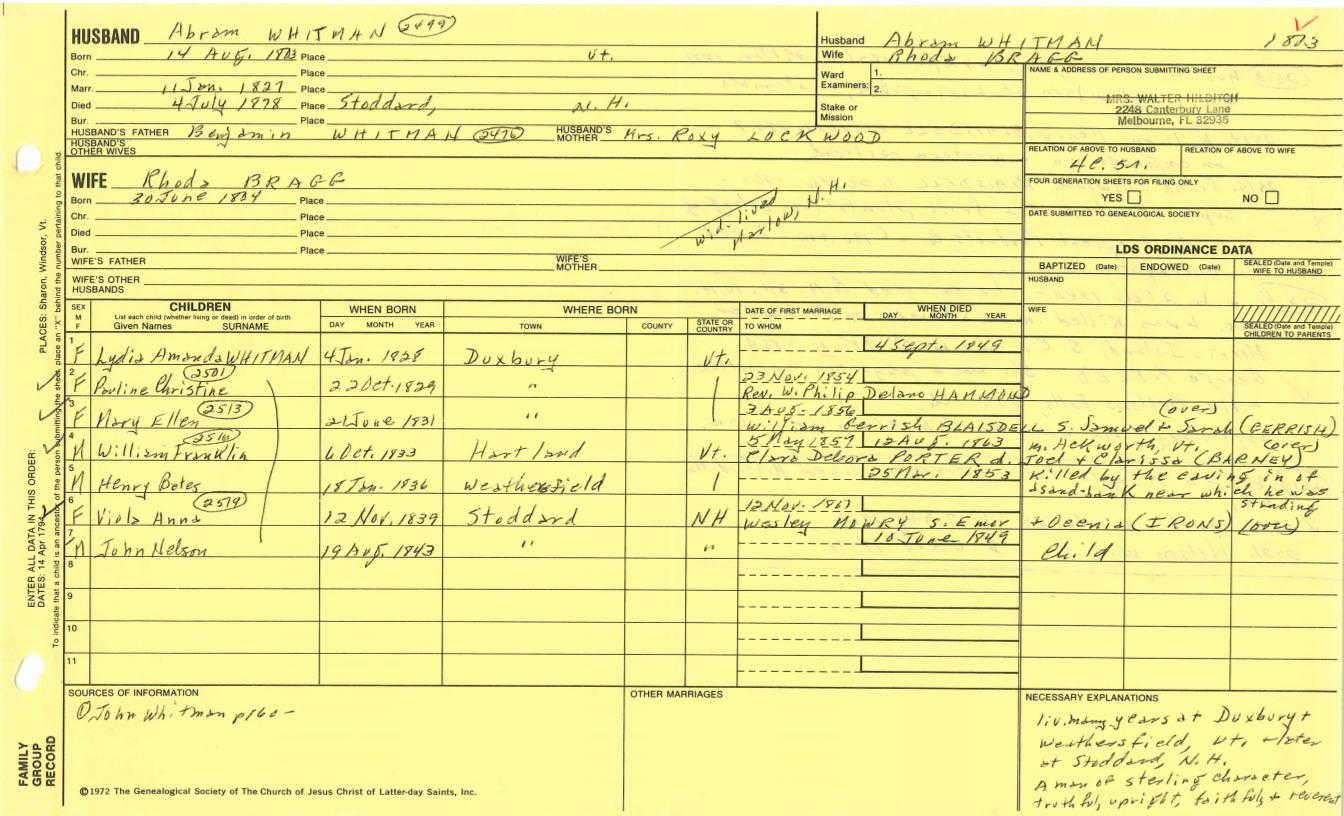 HUSBAND Abram WHITMAN 2499
Born 14 Aug. 1803 Place Vt.
Chr. Place
Marr. 11 Jan. 1827 Place
Died 4 July 1878 Place Stoddard, N. H.
Bur. Place
HUSBAND'S FATHER Benjamin WHITMAN 2476 HUSBAND'S MOTHER Mrs. Roxy LOCKWOOD
HUSBAND'S OTHER WIVES
WIFE Rhoda BRAGG
Born 30 June 1804 Place
Chr. Place
Died Place
Bur. Place
wid. lived
Marlow, N.H.
WIFE'S FATHER WIFE'S MOTHER
WIFE'S OTHER HUSBANDS
Husband Abram WHITMAN 1803
Wife Rhoda BRAGG
Ward Examiners: 1.
2.
Stake or Mission
NAME & ADDRESS OF PERSON SUBMITTING SHEET
MRS. WALTER HILDITCH
2248 Canterbury Lane
Melbourne, FL 32935
RELATION OF ABOVE TO HUSBAND RELATION OF ABOVE TO WIFE
4c. 5r.
FOUR GENERATION SHEETS FOR FILING ONLY
YES NO
DATE SUBMITTED TO GENEALOGICAL SOCIETY
LDS ORDINANCE DATA
BAPTIZED (Date) ENDOWED (Date) SEALED (Date and Temple) WIFE TO HUSBAND
HUSBAND
WIFE
SEALED (Date and Temple) CHILDREN TO PARENTS
SEX M F CHILDREN WHEN BORN WHERE BORN DATE OF FIRST MARRIAGE WHEN DIED
List each child (whether living or dead) in order of birth
Given Names SURNAME DAY MONTH YEAR TOWN COUNTY STATE OR COUNTRY TO WHOM DAY MONTH YEAR
1 F Lydia Amanda WHITMAN 4 Jan. 1828 Duxbury Vt. 4 Sept. 1849
2 F Pauline Christine 2501 22 Oct. 1829 " 23 Nov. 1854
Rev. W. Philip Delano HAMMOND
3 F Mary Ellen 2513 21 June 1831 " 3 Aug. 1856 (over)
William Gerrish BLAISDELL S. Samuel + Sarah (GERRISH)
4 M William Franklin 2516 6 Oct. 1833 Hartland Vt. 5 May 1857 12 Aug. 1863 m. Ackworth, Vt. (over)
Clara Debora PORTER d. Joel + Clarissa (BARNEY)
5 M Henry Bates 18 Jan. 1836 Weathersfield 25 Mar. 1853 killed by the caving in of
a sand-bank near which he was standing
6 F Viola Anna 2519 12 Nov. 1839 Stoddard NH 12 Nov. 1861
Wesley MOWRY S. Emor + Ocenia (IRONS) (over)
7 M John Nelson 19 Aug. 1843 " " 10 June 1849 Child
8
9
10
11
SOURCES OF INFORMATION
① John Whitman p160-
OTHER MARRIAGES
NECESSARY EXPLANATIONS
liv. many years at Duxbury +
Weathersfield, Vt. + later
at Stoddard, N. H.
A man of sterling character,
truthful, upright, faithful, + reverent
©1972 The Genealogical Society of The Church of Jesus Christ of Latter-day Saints, Inc.
FAMILY GROUP RECORD
ENTER ALL DATA IN THIS ORDER:
DATES: 14 Apr 1794
PLACES: Sharon, Windsor, Vt.
To indicate that a child is an ancestor of the person submitting the sheet, place an "X" behind the number pertaining to that child.